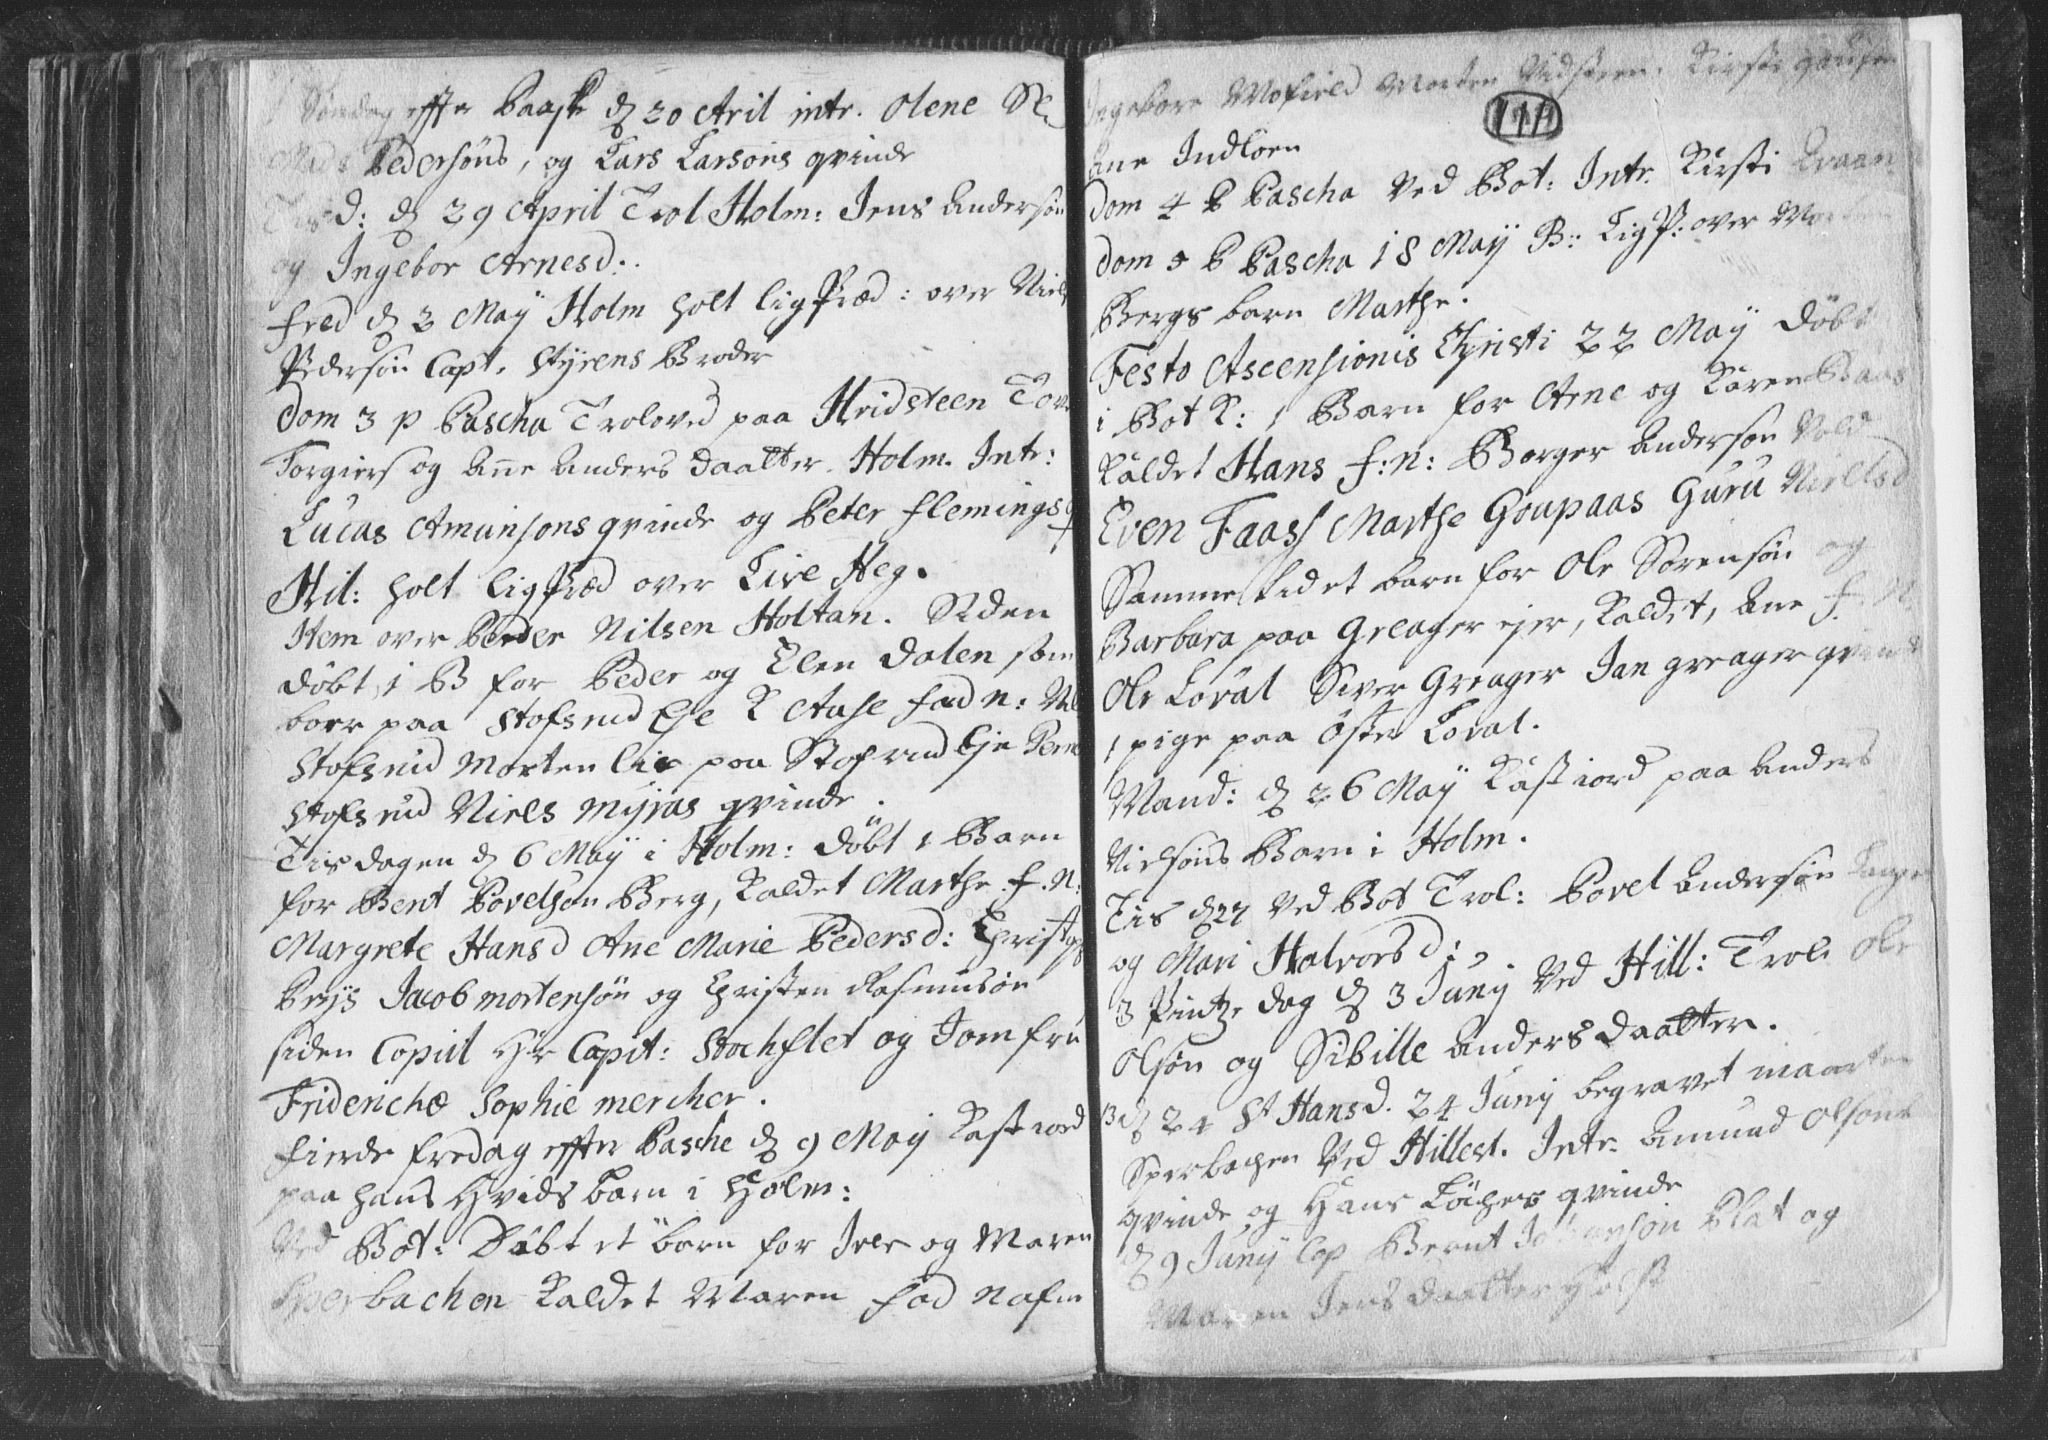 Søndag effter Paaske d 20 April intr. Olene
Mads Pedersøns, og Lars Larsons qvinde
Tisd: d 29 April Trol Holm: Jens Andersøn
og Ingebor Arnesd:.
Fred d 2 May Holm holt ligPræd: over Niels
Pedersøn Capt. Styrens Broder
Dom 3 p Pascha Troloved paa Hvidsteen Tore
Torgiers og Ane Anders daatter. Holm. Intr:
Lucas Amunsons qvinde og Peter Flemings q
Hil: holt ligPræd over Live Heg.
Item over Peder Nilsen Holtan. Siden
døbt 1 B for Peder og Elen Dalen som
boer paa Stofsrud Eje K Aase fad n:
Stofsrud Morten lie paa Stofsrud Eje
Stofsrud Niels Myras qvinde.
Tisdagen d 6 May i Holm: døbt 1 Barn
for Bent Povelsøn Berg, kaldet Marthe. f. N:
Margrete Hansd Ane Marie Pedersd:
Prys Jacob mortensøn og Christen Rasmusøn
siden Copul Hr Capit: Stochflet og Jomfru
Friderichæ Sophie mercher.
Fierde fredag effter Pasche d 9 May Kast iord
paa Hans Hvids barn i Holm:
Ved Bot: Døbt et barn for Iver og Maren
Sperbachen Kaldet Maren fad nafne
Ingebore Mofield Morten Vidsteen. Kirsti
111
Ane Indloen
Dom 4 P Pascha Ved Bot: Intr. Kirsti
Dom 5 P Pascha 18 May B: LigP: over
Bergs barn Marthe.
Festo Ascensionis Christi 22 May døbt
i Bot K: 1 Barn for Arne og Karen
Kaldet Hans f: n: Borger Andersøn
Even Faass Marthe Goupaas Guru Nielsd
Samme tid et barn for Ole Sørensøn og
Barbara paa Greager ejer, Kaldet, Ane f. N
Ole Loval Siver Greager Jan greager qvinde
1 pige paa Øster Loval.
Mand: d 26 May Kast iord paa Anders
Nielsøns Barn i Holm.
Tis d 27 Ved Bot Trol: Povel Andersøn
og Mari Halvorsd:
3 Pintze dag d 3 Juny Ved Hill: Trol: Ole
Olsøn og Sibille Anders daatter.
d 24 St Hansd. 24 Juny begravet
Sperbachen Ved Hillest. Intr. Amund Olsøns
qvinde og Hans qvinde
d 9 Juny Cop Bernt Plat og
Maren Jens daatter Holst